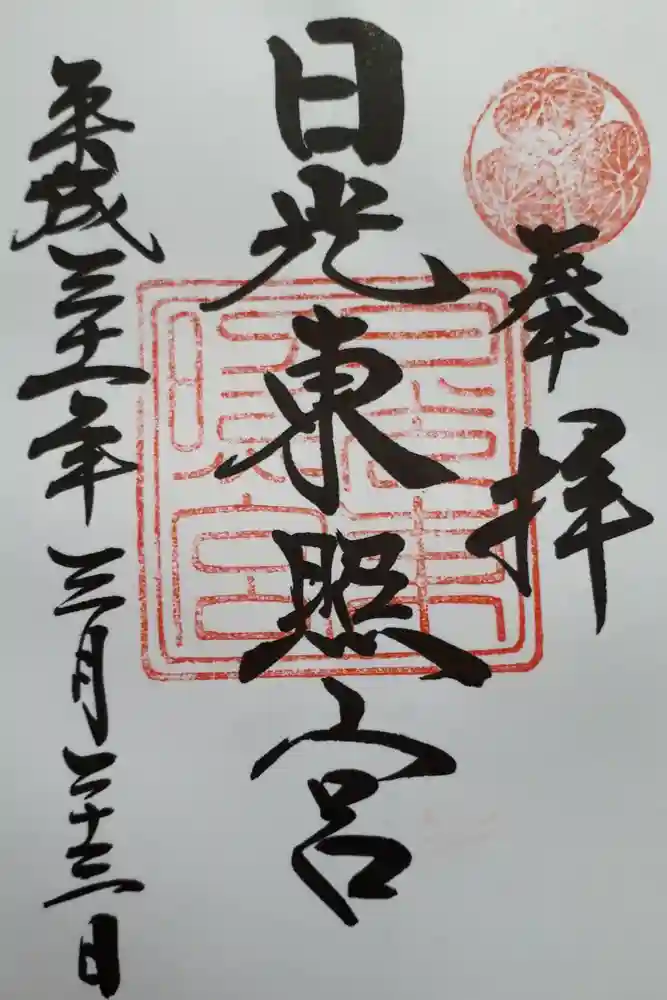 奉拝
日光東照宮
平成三十一年三月二十三日
日光東
照宮